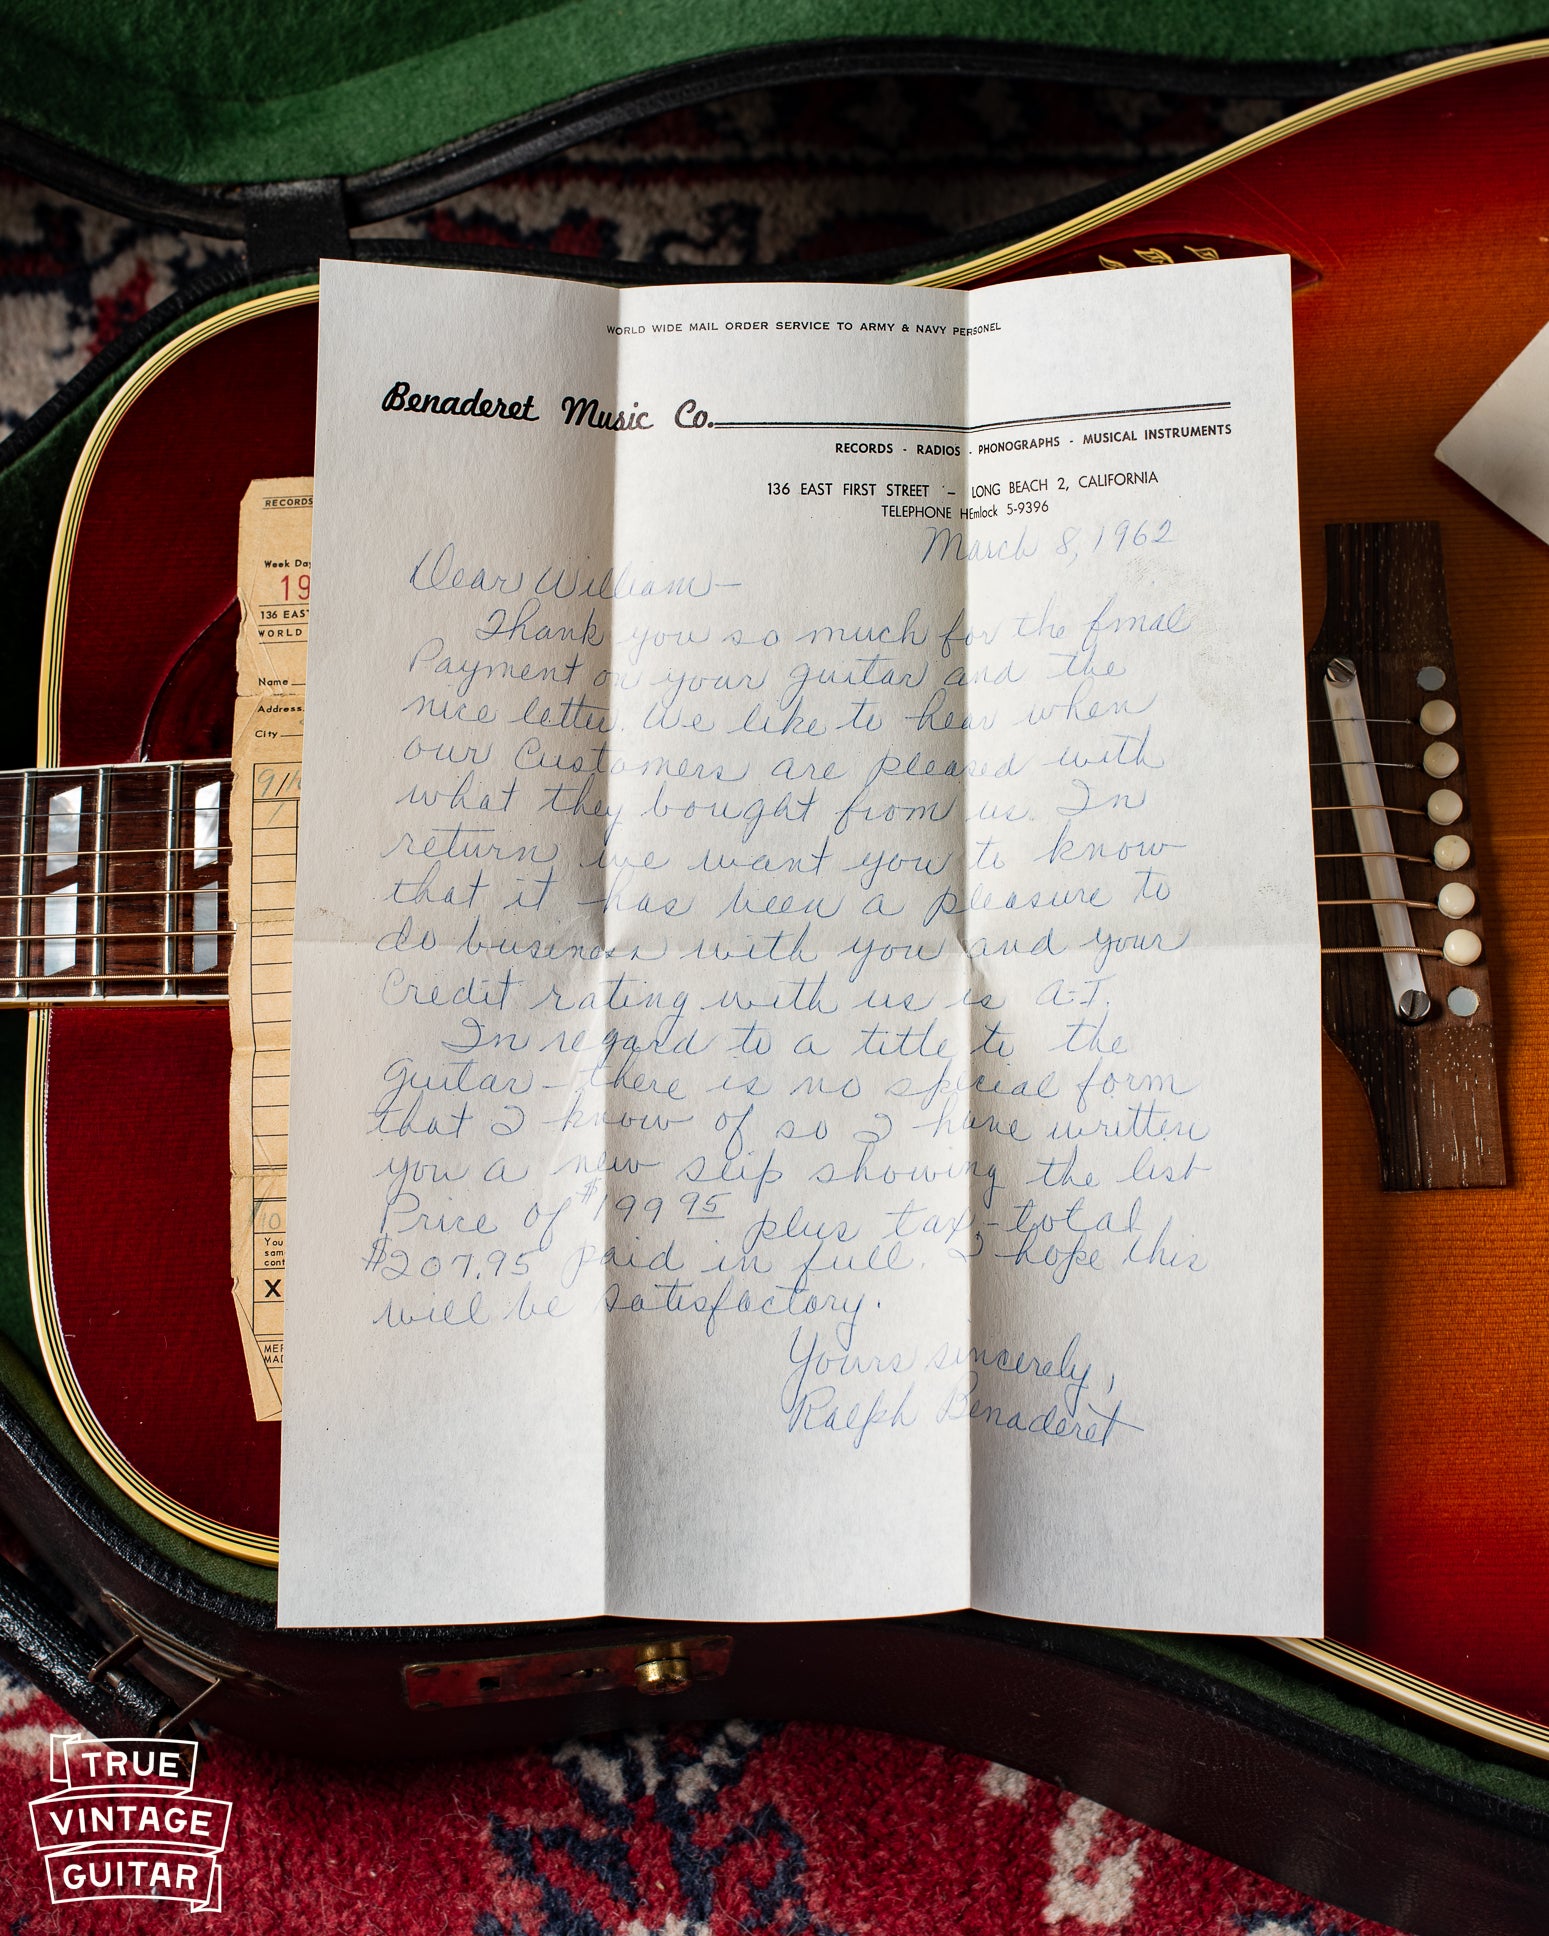 WORLD WIDE MAIL ORDER SERVICE TO ARMY & NAVY PERSONEL
Benaderet Music Co.
RECORDS - RADIOS - PHONOGRAPHS - MUSICAL INSTRUMENTS
136 EAST FIRST STREET - LONG BEACH 2, CALIFORNIA
TELEPHONE HEmlock 5-9396
March 8, 1962
Dear William -
Thank you so much for the final
Payment on your guitar and the
nice letter. We like to hear when
our Customers are pleased with
what they bought from us. In
return we want you to know
that it has been a pleasure to
do business with you and your
Credit rating with us is A-1.
In regard to a title to the
guitar - there is no special form
that I know of so I have written
you a new slip showing the list
Price of $199 95 plus tax - total
$207.95 paid in full. I hope this
will be satisfactory.
Yours sincerely,
Ralph Benaderet
RECORDS
Week Day
19
136 EAST
WORLD
Name
Address
City
9/
10
You
sam
cont
X
MER
MAD
TRUE
VINTAGE
GUITAR